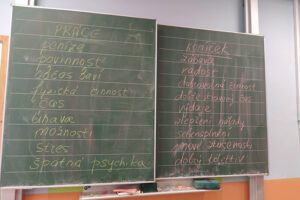 PRÁCE
peníze
povinnost
občas baví
fyzická činnost
čas
únava
možnosti
stres
špatná psychika
KONÍČEK
zábava
radost
dobrovolná činnost
volný čas
výdaje
zlepšení nálady
seberealizace
nové zkušenosti
dobrý